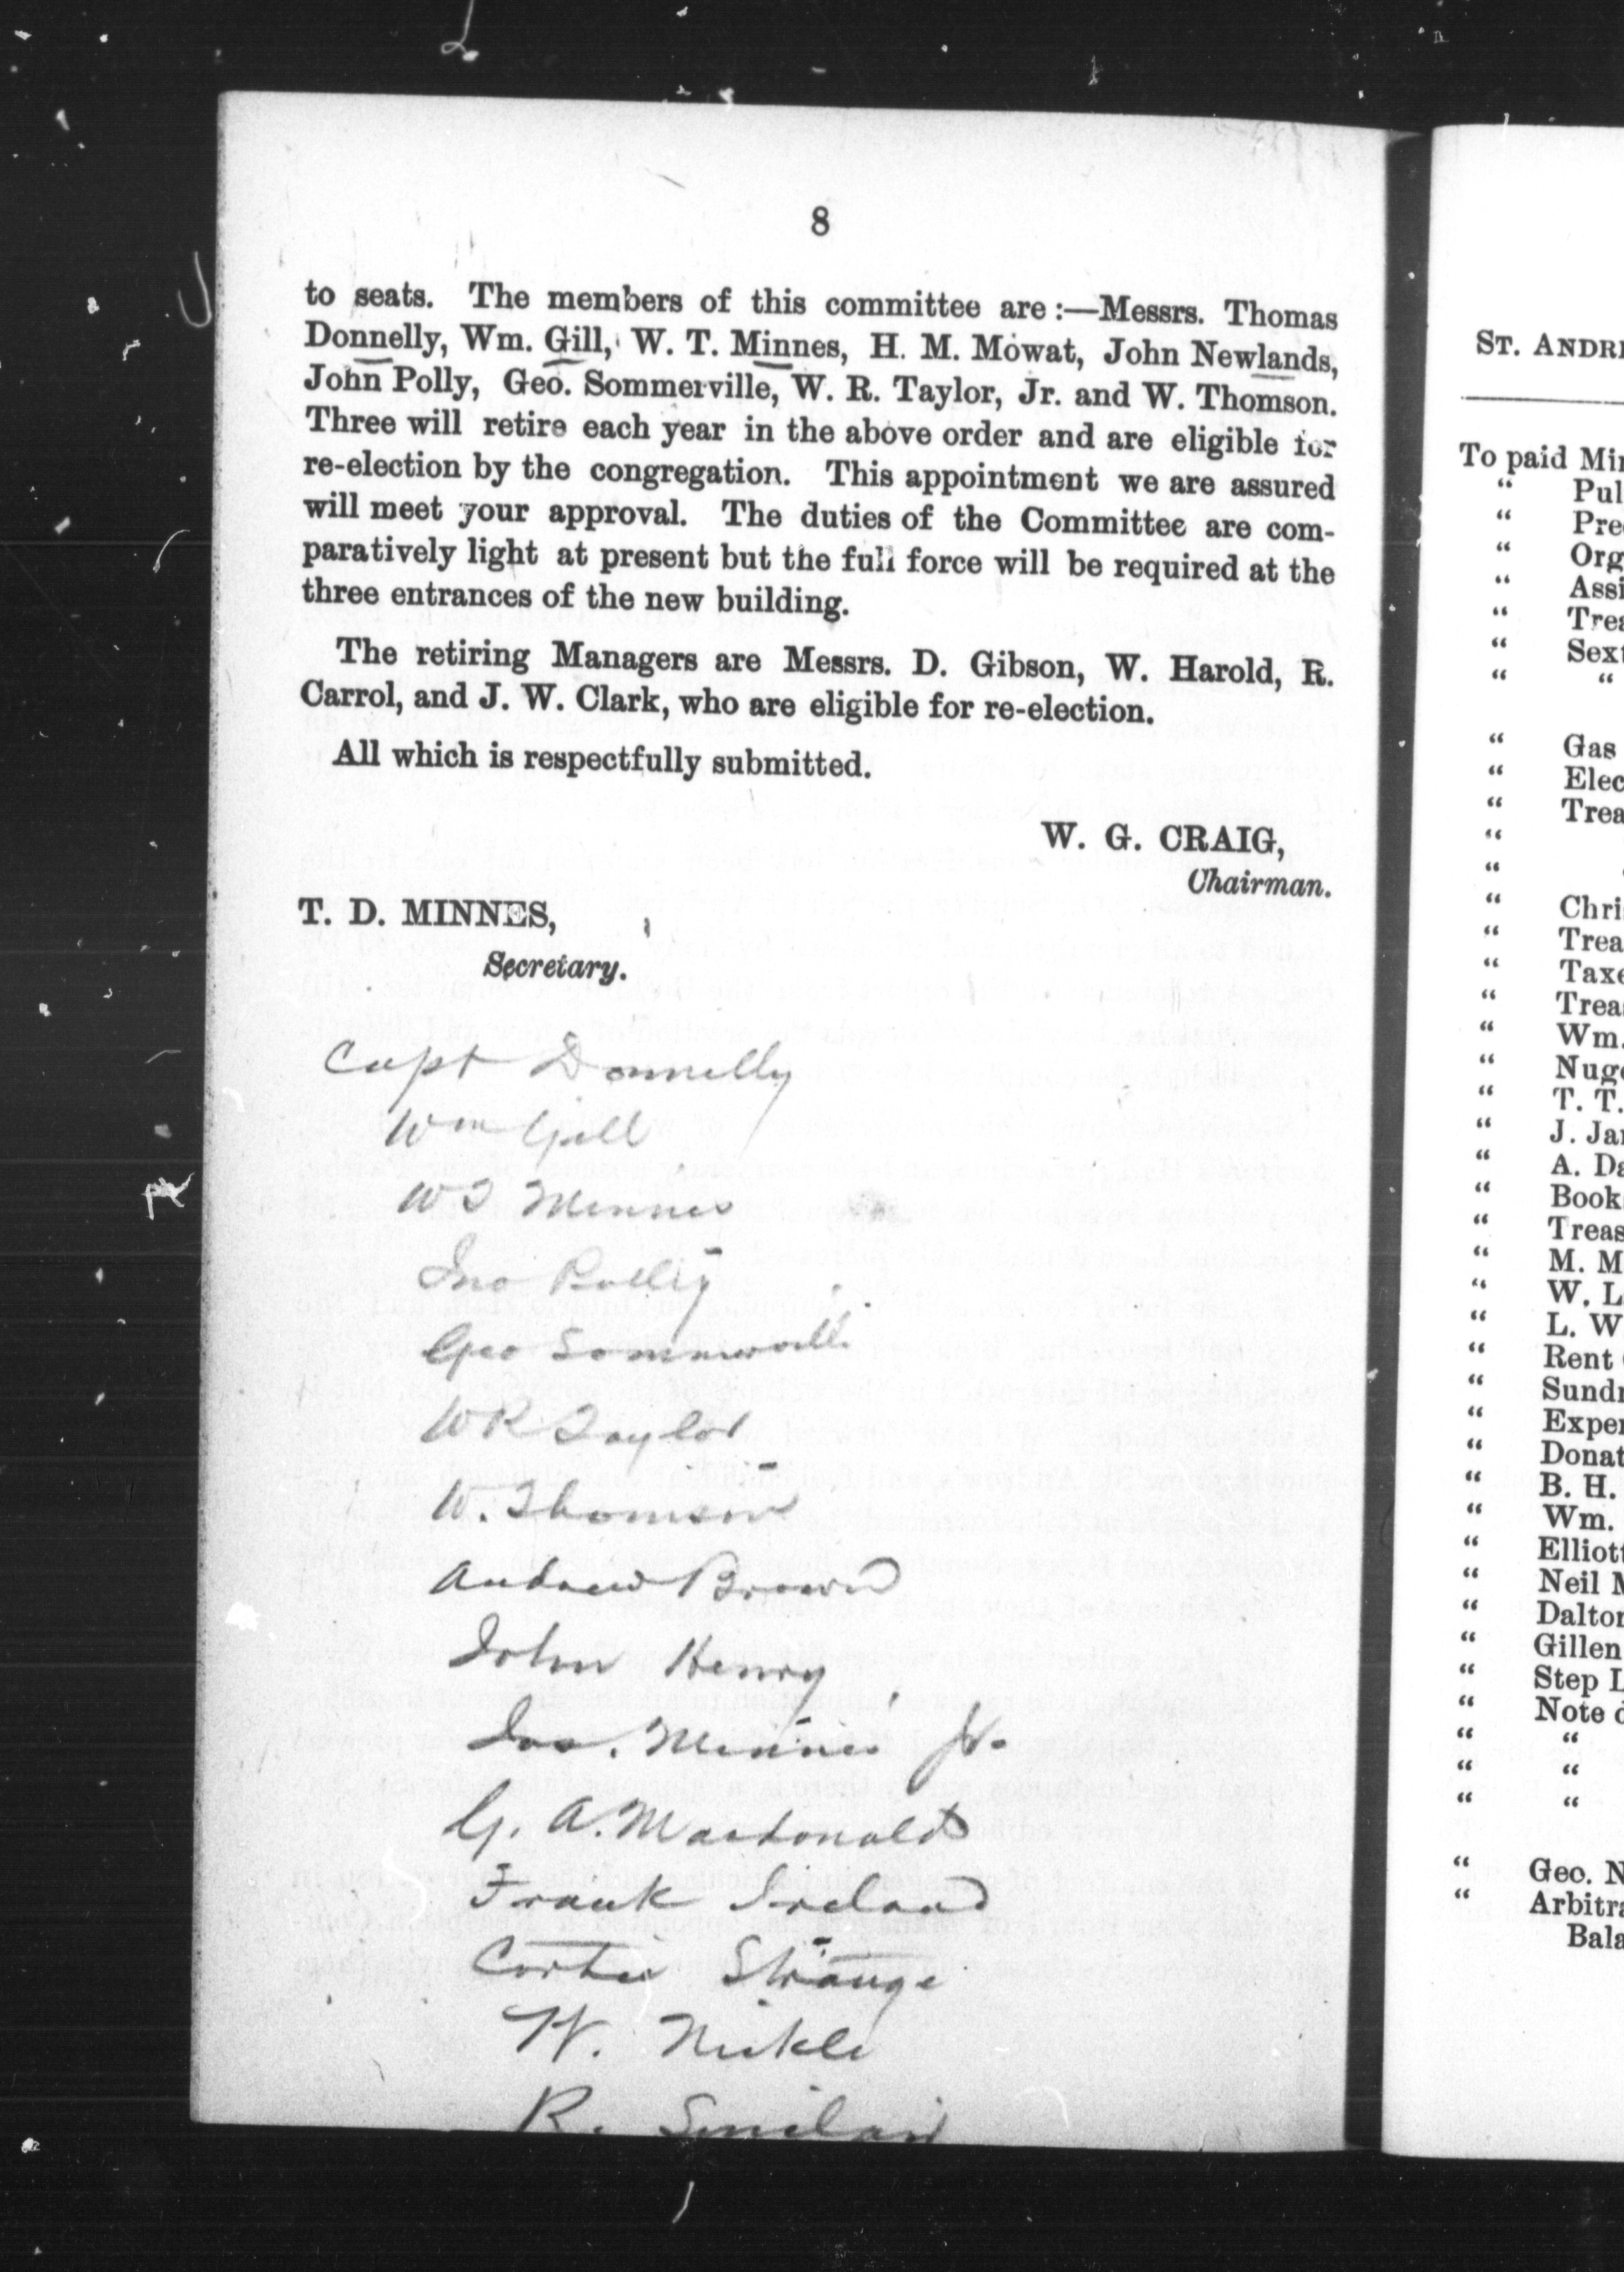 8
to seats. The members of this committee are :—Messrs. Thomas
Donnelly, Wm. Gill, W. T. Minnes, H. M. Mowat, John Newlands,
John Polly, Geo. Sommerville, W. R. Taylor, Jr. and W. Thomson.
Three will retire each year in the above order and are eligible for
re-election by the congregation. This appointment we are assured
will meet your approval. The duties of the Committee are com-
paratively light at present but the full force will be required at the
three entrances of the new building.
The retiring Managers are Messrs. D. Gibson, W. Harold, R.
Carrol, and J. W. Clark, who are eligible for re-election.
All which is respectfully submitted.
W. G. CRAIG,
Chairman.
T. D. MINNES,
Secretary.
Capt Donnelly
Wm Gill
W T Minnes
Jno Polley
Geo Sommerville
W R Taylor
W. Thomson
Andrew Brown
John Henry
Jas. Minnes Jr.
G. A. Macdonald
Frank Ireland
Strange
W. Nickle
R. Sinclair
ST. ANDRE
To paid Min
“ Pul
“ Pre
“ Org
“ Assi
“ Trea
“ Sext
“ “
“ Gas
“ Elec
“ Trea
“
“
“ Chri
“ Trea
“ Taxe
“ Trea
“ Wm.
“ Nuge
“ T. T.
“ J. Jan
“ A. Da
“ Book
“ Treas
“ M. M
“ W. L
“ L. W
“ Rent
“ Sundr
“ Exper
“ Donat
“ B. H.
“ Wm.
“ Elliott
“ Neil M
“ Dalton
“ Gillen
“ Step L
“ Note o
“ “
“ “
“ “
“ Geo. N
“ Arbitra
Bala